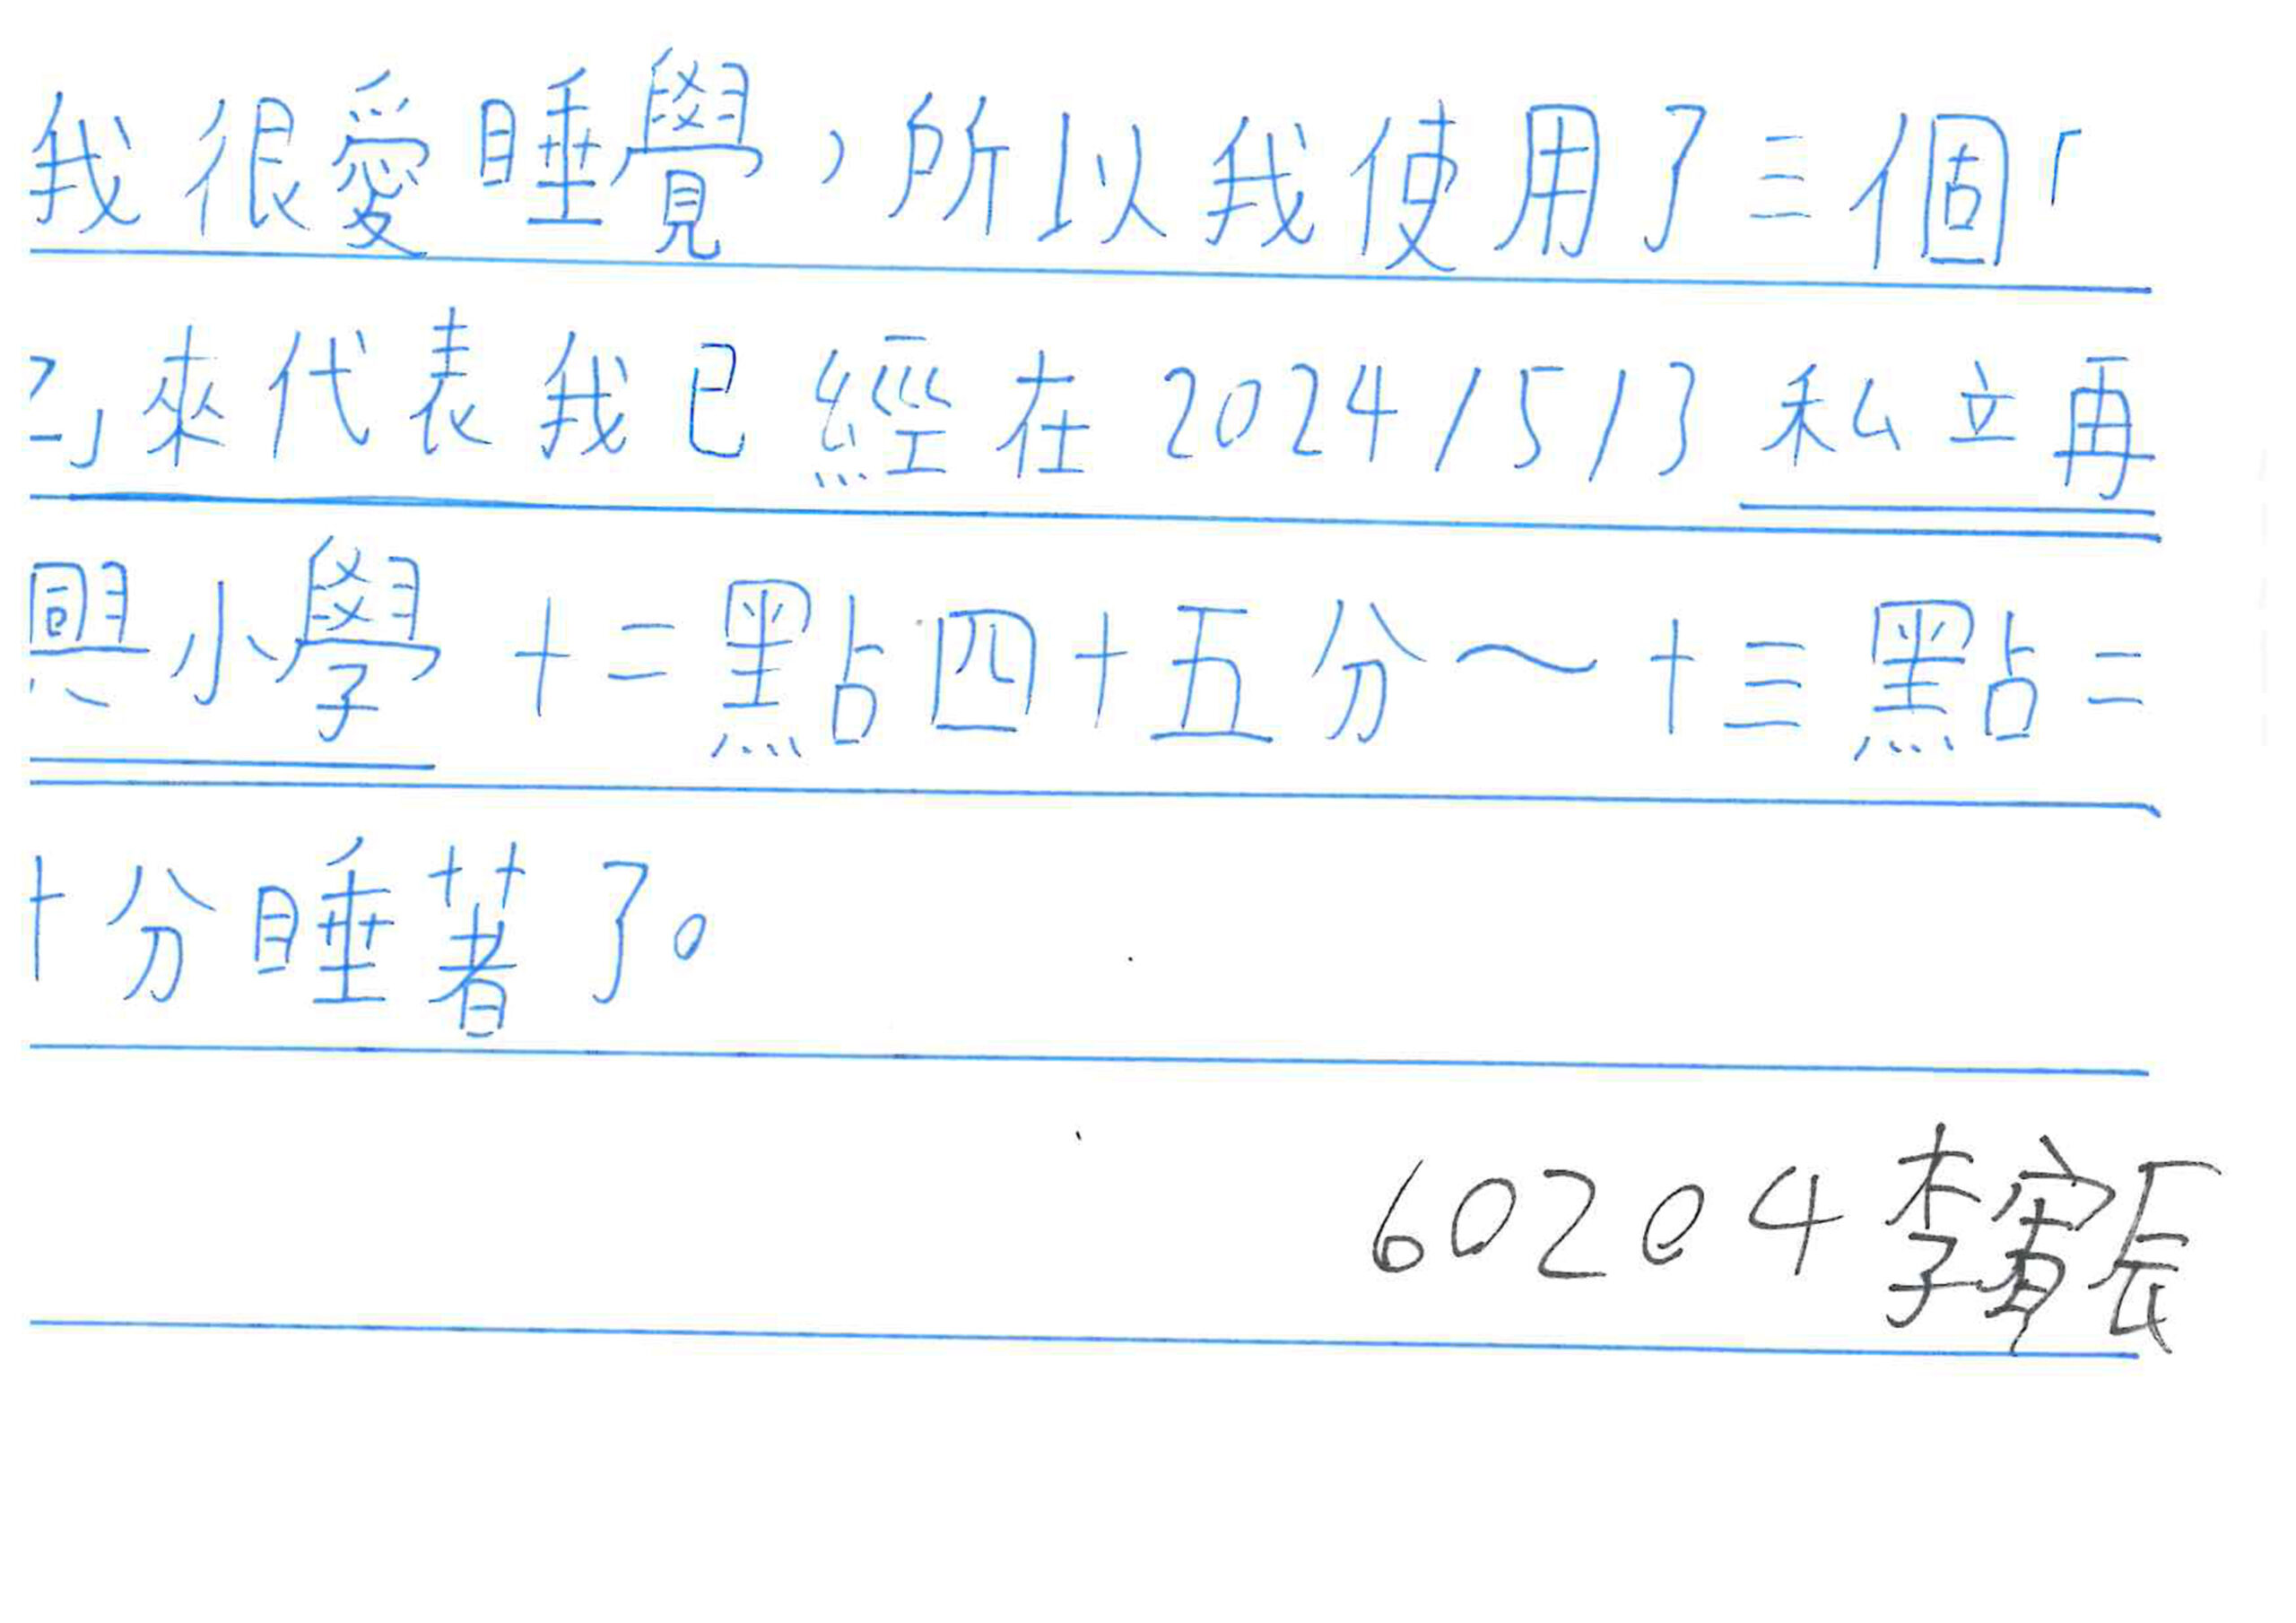 我很愛睡覺，所以我使用了三個「
Z」來代表我已經在2024/5/3私立再
興小學十二點四十五分～十三點二
十分睡著了。
60204 李